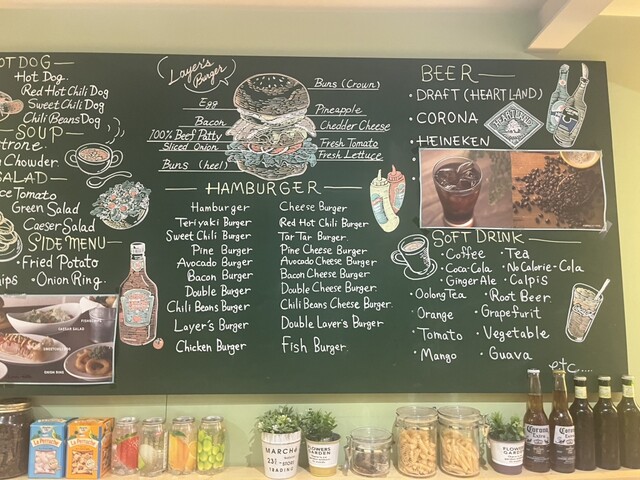 OT DOG
Hot Dog
Red Hot Chili Dog
Sweet Chili Dog
Chili Beans Dog
SOUP
strone
Chowder
SALAD
ce Tomato
Green Salad
Caeser Salad
SIDE MENU
・Fried Potato
ips ・Onion Ring
CAESAR SALAD
ONION RING
Layer's Burger
Egg
Bacon
100% Beef Patty
Sliced Onion
Buns (heel)
Buns (Crown)
Pineapple
Chedder Cheese
Fresh Tomato
Fresh Lettuce
HAMBURGER
Hamburger
Teriyaki Burger
Sweet Chili Burger
Pine Burger
Avocado Burger
Bacon Burger
Double Burger
Chili Beans Burger
Layer's Burger
Chicken Burger
Cheese Burger
Red Hot Chili Burger
Tar Tar Burger
Pine Cheese Burger
Avocado Cheese Burger
Bacon Cheese Burger
Double Cheese Burger
Chili Beans Cheese Burger
Double Layer's Burger
Fish Burger
BEER
・DRAFT (HEARTLAND)
・CORONA
・HEINEKEN
HEARTLAND
SOFT DRINK
・Coffee ・Tea
・Coca-Cola ・No Calorie-Cola
・Ginger Ale ・Calpis
・Oolong Tea ・Root Beer
・Orange ・Grapefurit
・Tomato ・Vegetable
・Mango ・Guava
etc....
La Perruche
La Perruche
MARCHÉ
231
STORE
TRADING
FLOWERS
GARDEN
FLOWERS
GARDEN
Corona
Extra
Corona
Extra